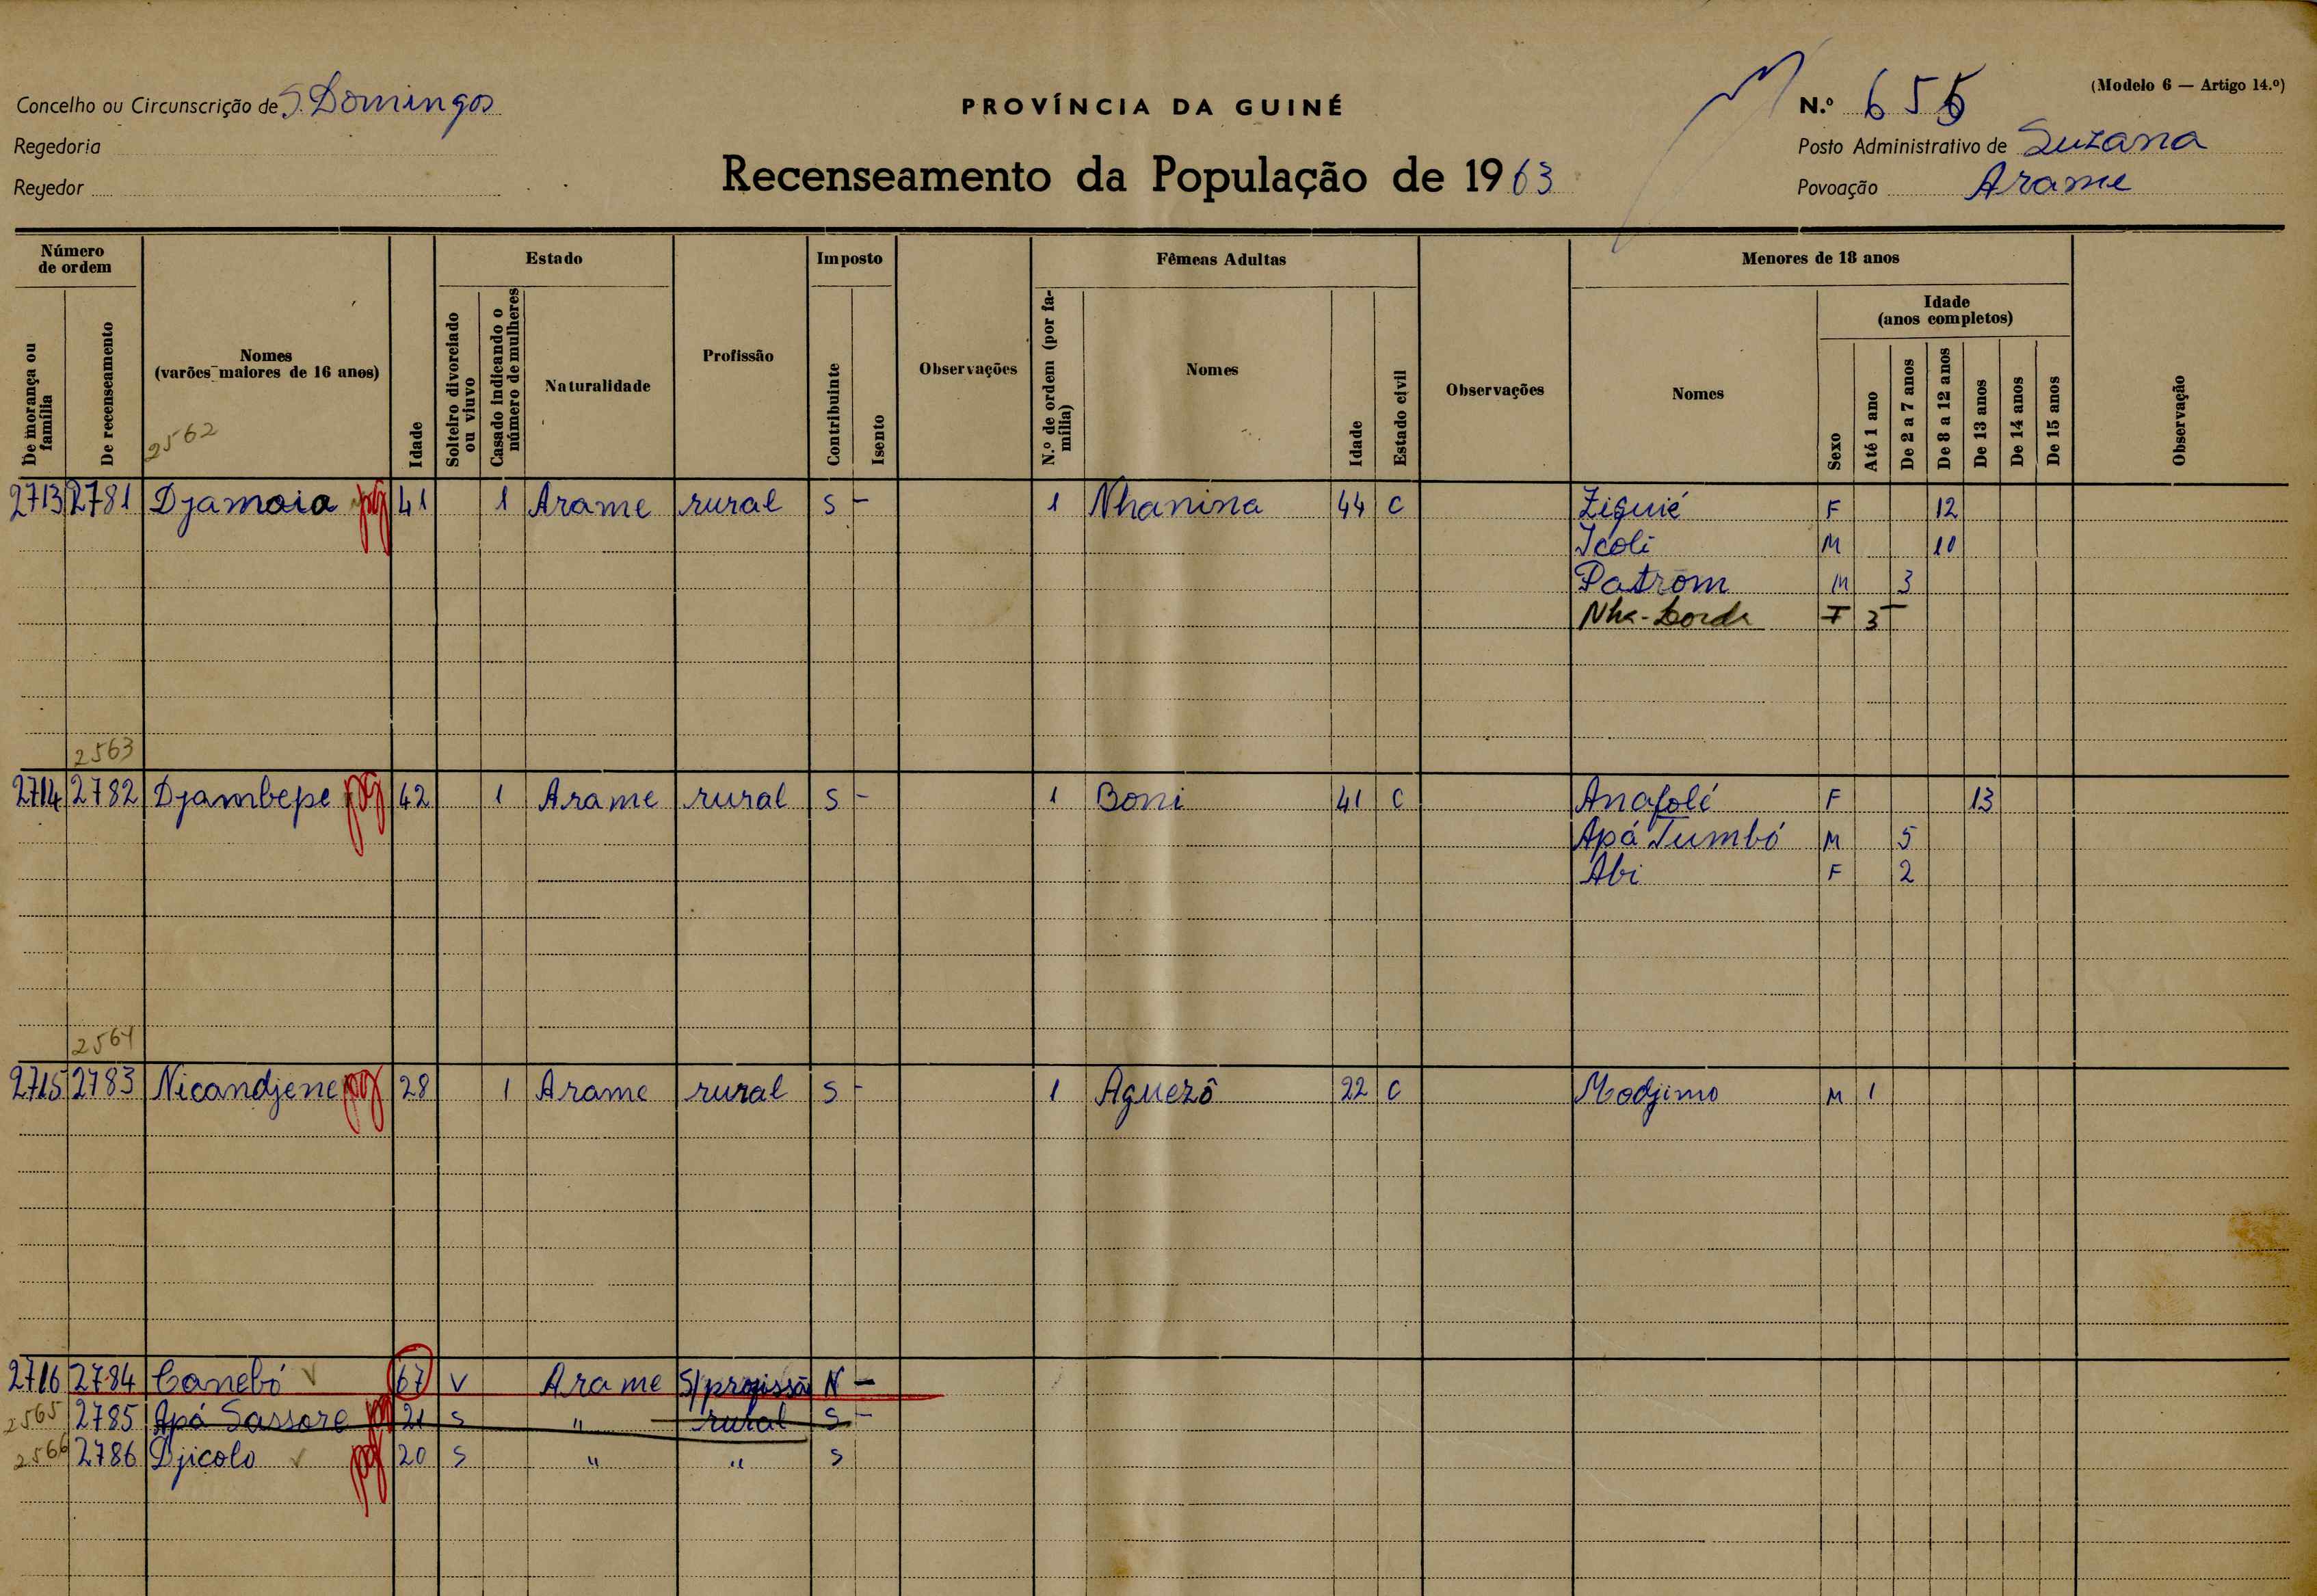 (Modelo 6 — Artigo 14.º)
Concelho ou Circunscrição de S. Domingos
PROVÍNCIA DA GUINÉ
N.º 656
Regedoria
Posto Administrativo de Suzana
Regedor
Recenseamento da População de 1963
Povoação Arame
Número de ordem
Estado
Imposto
Fêmeas Adultas
Menores de 18 anos
De morança ou família
De recenseamento
Nomes (varões maiores de 16 anos)
Idade
Solteiro divorciado ou viuvo
Casado indicando o número de mulheres
Naturalidade
Profissão
Contribuinte
Isento
Observações
N.º de ordem (por família)
Nomes
Idade
Estado civil
Observações
Nomes
Sexo
Idade (anos completos)
Até 1 ano
De 2 a 7 anos
De 8 a 12 anos
De 13 anos
De 14 anos
De 15 anos
Observação
2562
2713 2781 Djamoia pg 41 1 Arame rural S - 1 Nhanina 44 C Ziguié F 12
Icoli M 10
Patrom M 3
F 3 -
2563
2714 2782 Djambepe pg 42 1 Arame rural S - 1 Boni 41 C Anafolé F 13
Apá Tumbó M 5
Abi F 2
2564
2715 2783 Nicandjene pg 28 1 Arame rural S - 1 Aguezô 22 C Modjimo M 1
2716 2784 Canebó 67 V Arame S/profissão N -
2565 2785 Apá Sassore pg 21 S " rural S -
2566 2786 Djicolo pg 20 S " " S